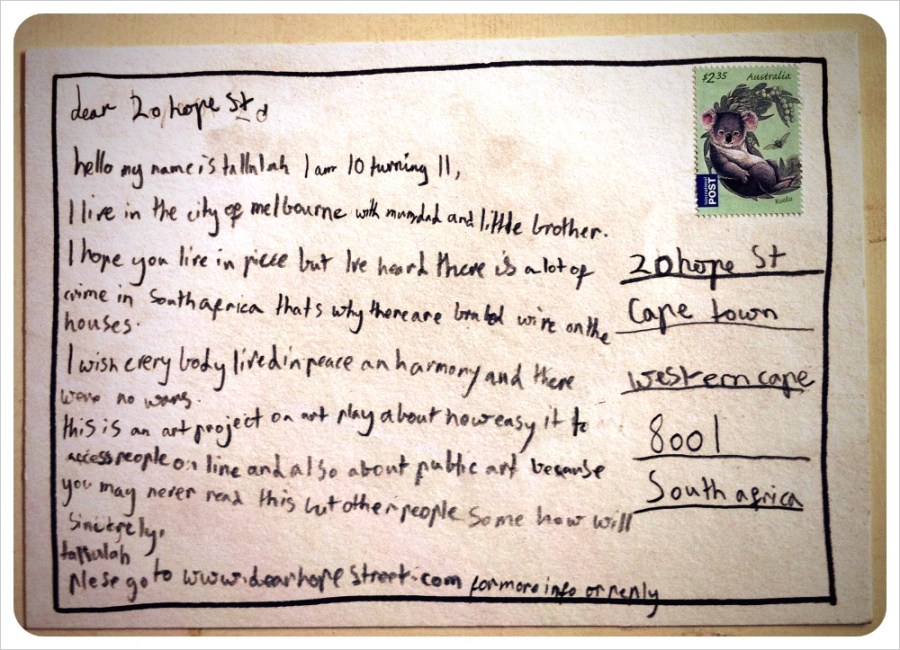 dear 20 hope St
$2.35 Australia
hello my name is tallulah I am 10 turning 11,
International POST
Koala
I live in the city of melbourne with mum, dad and little brother.
I hope you live in piece but Ive heard there is a lot of
crime in South africa thats why there are barbed wire on the
houses.
I wish every body lived in peace an harmony and there
were no wars.
this is an art project on art play about how easy it to
access people on line and also about public art because
you may never read this but other people Some how will
Sincerely,
tallulah
plese go to www.dearhopestreet.com for more info or reply
20 hope St
Cape town
western cape
8001
South africa